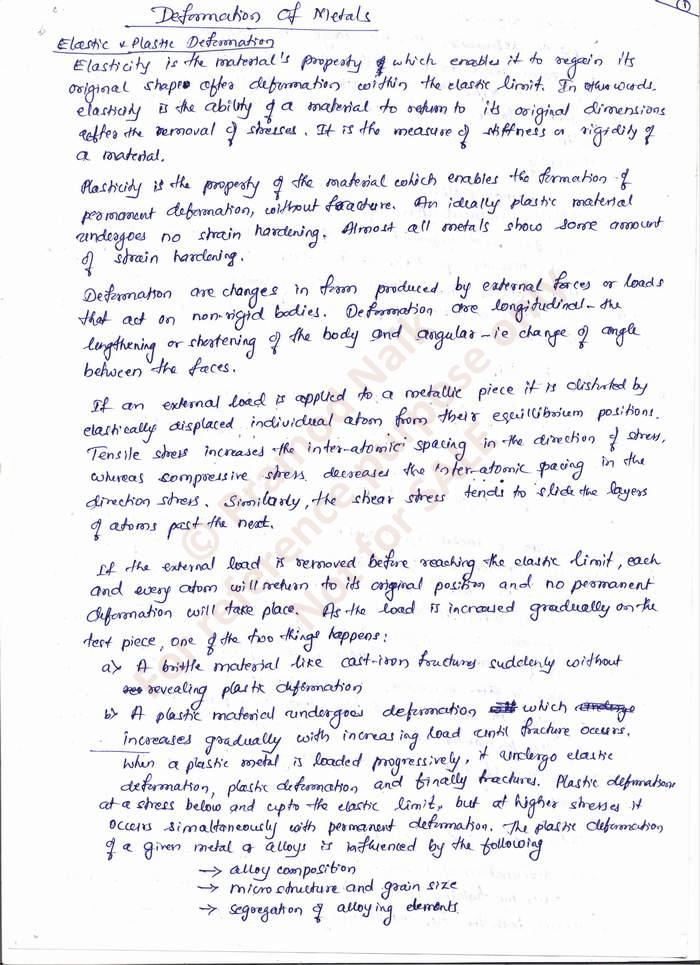 Deformation Of Metals
1
Elastic & Plastic Deformation
Elasticity is the material's property which enables it to regain its
original shape after deformation within the elastic limit. In other words
elasticity is the ability of a material to return to its original dimensions
after the removal of stresses. It is the measure of stiffness or rigidity of
a material.
Plasticity is the property of the material which enables the formation of
permanent deformation, without fracture. An ideally plastic material
undergoes no strain hardening. Almost all metals show some amount
of strain hardening.
Deformation are changes in form produced by external forces or loads
that act on non-rigid bodies. Deformation are longitudinal - the
lengthening or shortening of the body and angular - ie change of angle
between the faces.
If an external load is applied to a metallic piece it is disturted by
elastically displaced individual atom from their equillibrium positions.
Tensile stress increases the inter-atomic spacing in the direction of stress,
whereas compressive stress decreases the inter-atomic spacing in the
direction stress. Similarly, the shear stress tends to slide the layers
of atoms past the next.
If the external load is removed before reaching the elastic limit, each
and every atom will return to its original position and no permanent
deformation will take place. As the load is increased gradually on the
test piece, one of the two things happens:
a) A brittle material like cast-iron fractures suddenly without
revealing plastic deformation
b) A plastic material undergoes deformation which
increases gradually with increasing load until fracture occurs.
When a plastic metal is loaded progressively, it undergo elastic
deformation, plastic deformation and finally fractures. Plastic deformation
at a stress below and upto the elastic limit, but at higher stresses it
occurs simaltaneously with permanent deformation. The plastic deformation
of a given metal or alloys is influenced by the following
→ alloy composition
→ microstructure and grain size
→ segregation of alloying elements
© Pramod Naik
For reference purpose only
Not for SALE